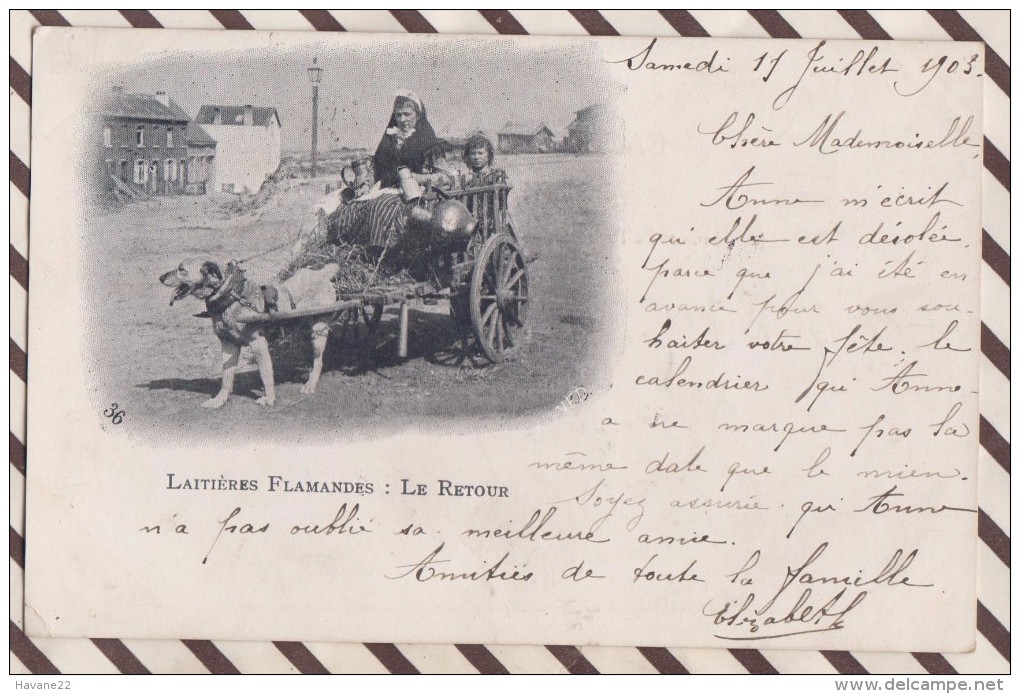 Samedi 11 Juillet 1903.
Chère Mademoiselle,
Anne m'écrit
qu'elle est désolée
parce que j'ai été en
avance pour vous sou-
haiter votre fête; le
calendrier qu'Anne
a ne marque pas la
même date que le mien.
Soyez assurée qu'Anne
n'a pas oublié sa meilleure amie.
Amitiés de toute la famille
Elisabeth
36
V.E.D.
LAITIÈRES FLAMANDES : LE RETOUR
© Havane22
www.delcampe.net